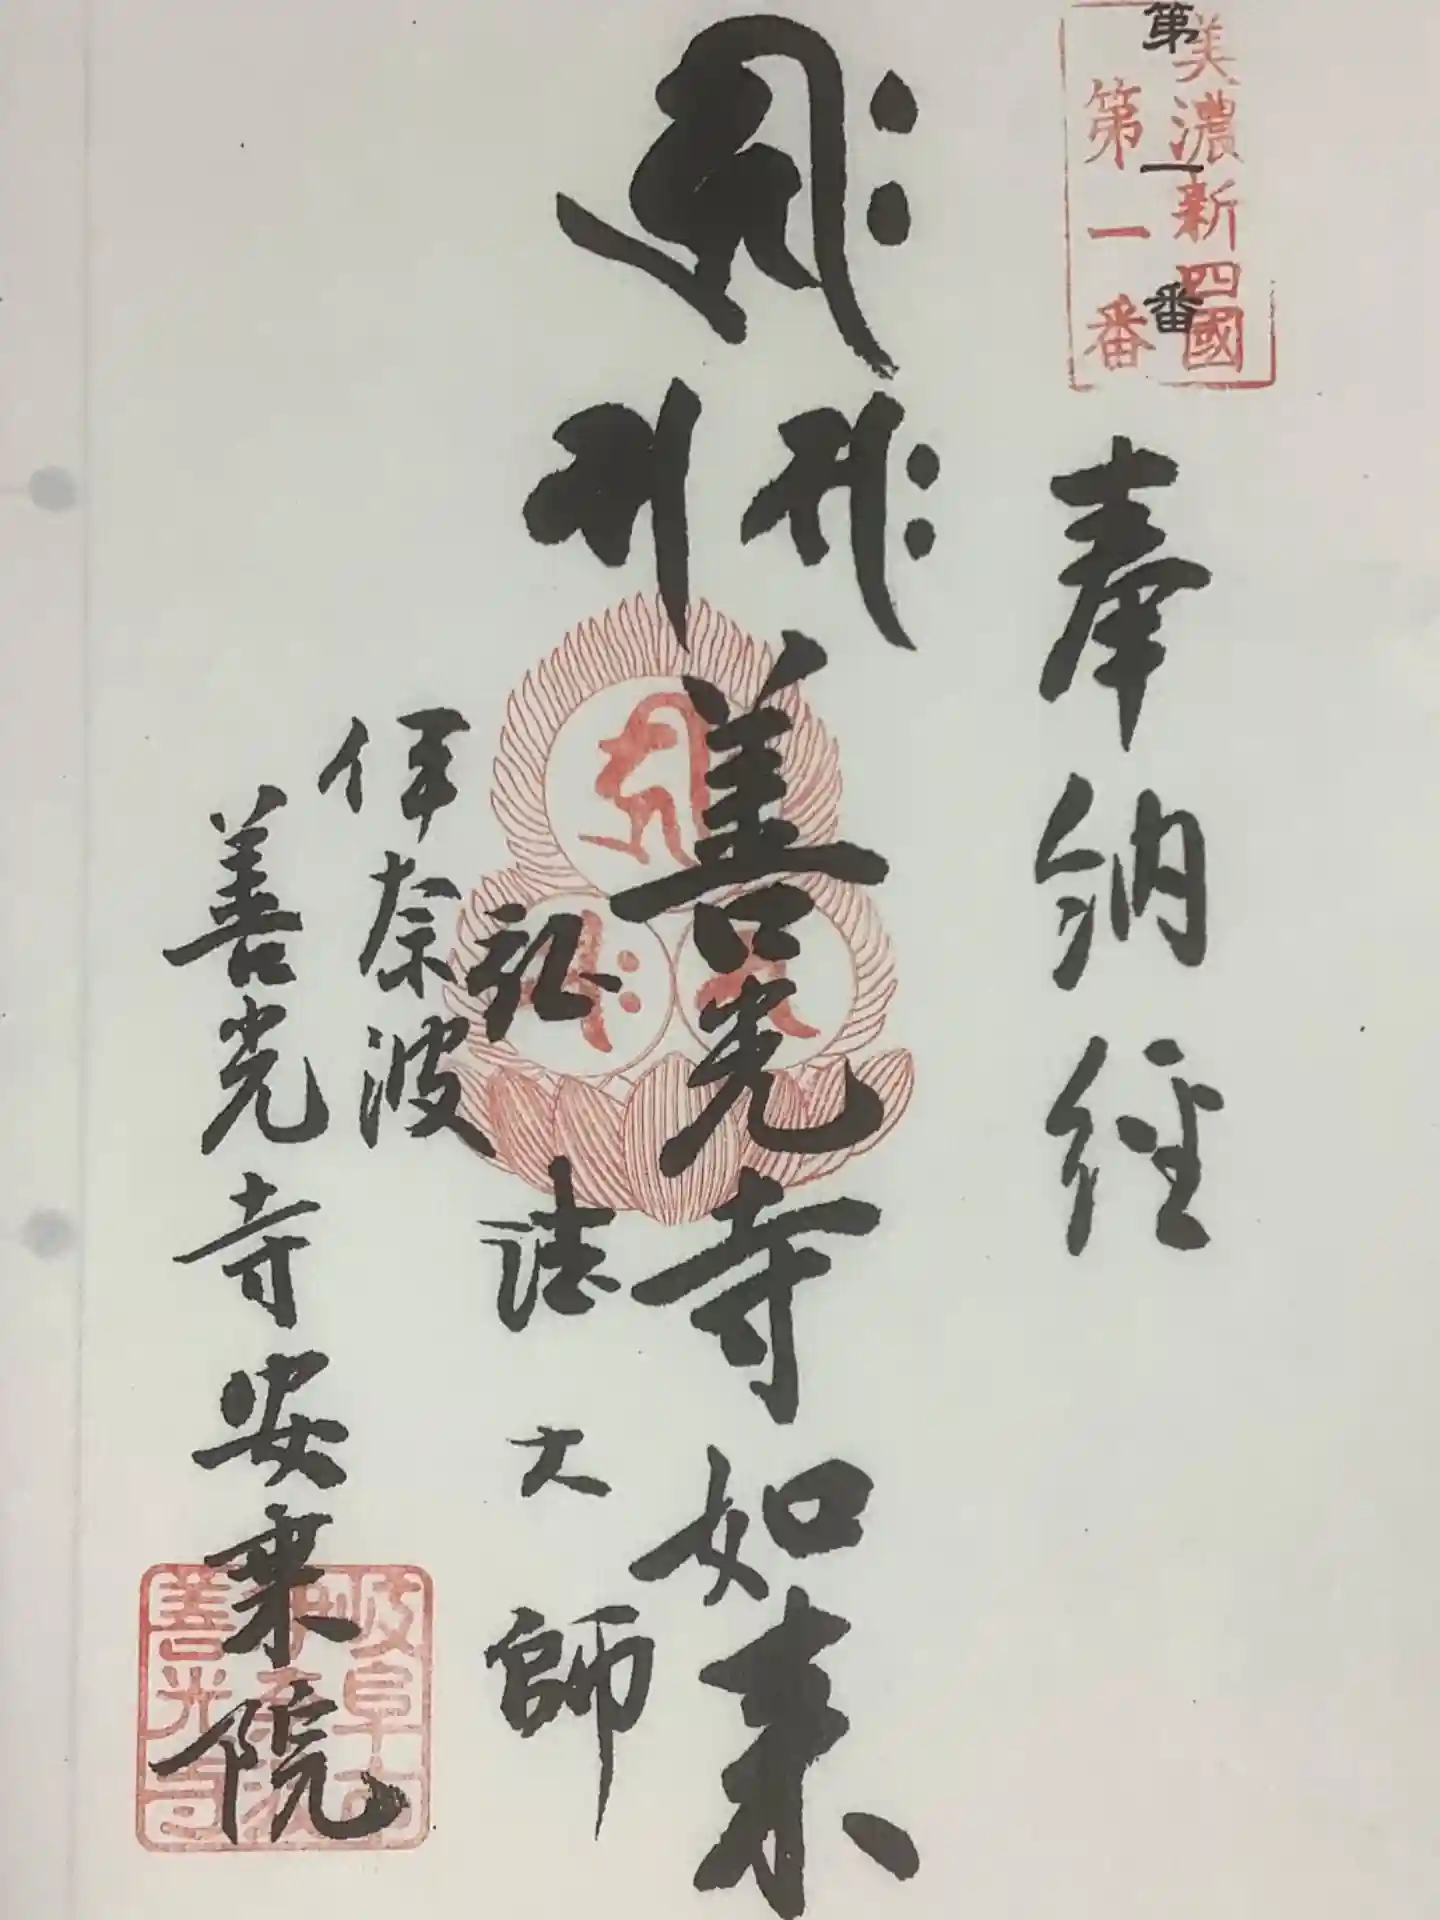 美濃新四國
第一番
第一番
奉納経
善光寺如来
弘法大師
伊奈波
善光寺安乗院
岐阜市
伊奈波
善光寺